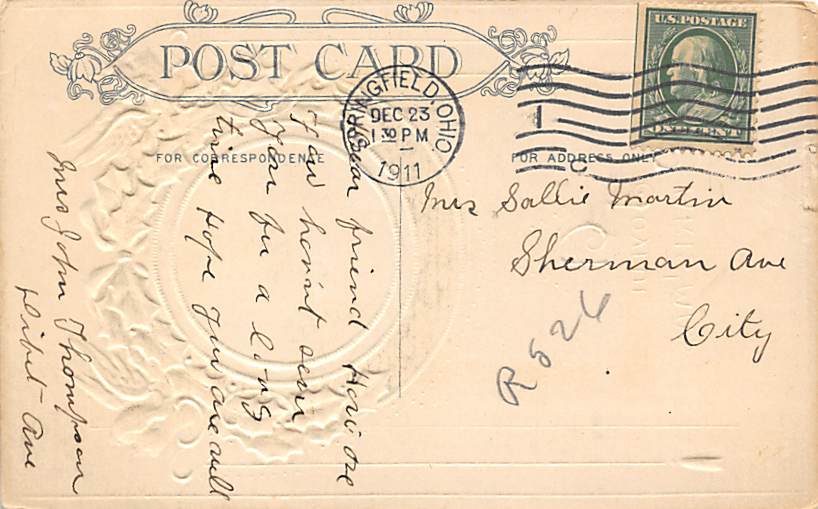 POST CARD
U.S. POSTAGE
ONE CENT
SPRINGFIELD, OHIO
DEC 23
1 30 PM
1911
FOR CORRESPONDENCE
FOR ADDRESS ONLY
Dear friend How are
You havn't seen
You for a long
time hope You are well
Mrs John Thompson
Ave
Mrs Sallie Martin
Sherman Ave
City
R526